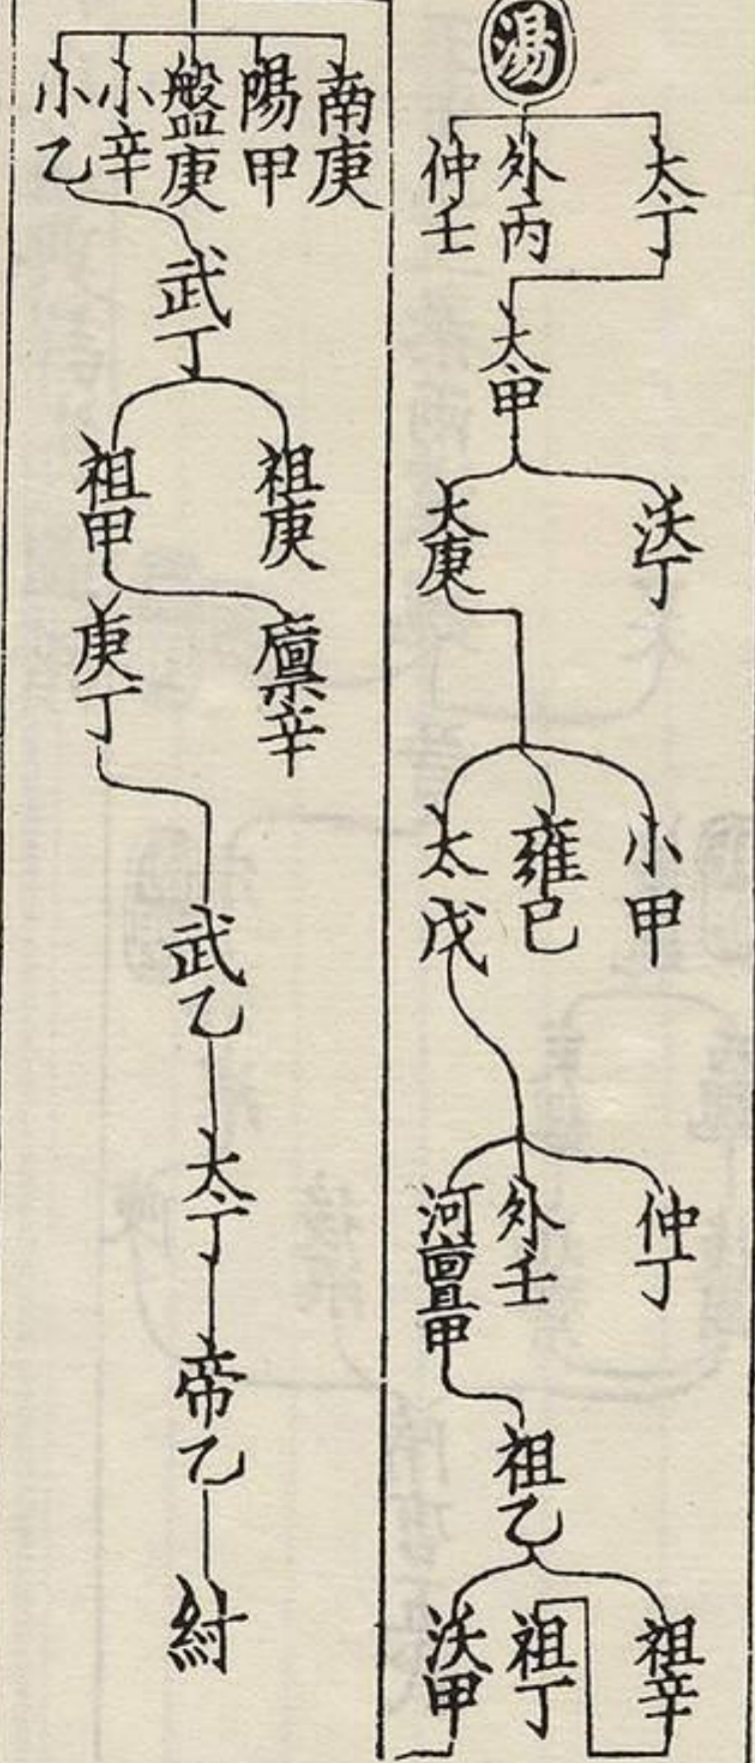 湯
太丁
外丙
仲壬
太甲
沃丁
太庚
小甲
雍已
太戊
仲丁
外壬
河亶甲
祖乙
祖辛
祖丁
沃甲
南庚
陽甲
盤庚
小辛
小乙
武丁
祖庚
祖甲
廩辛
庚丁
武乙
太丁
帝乙
紂